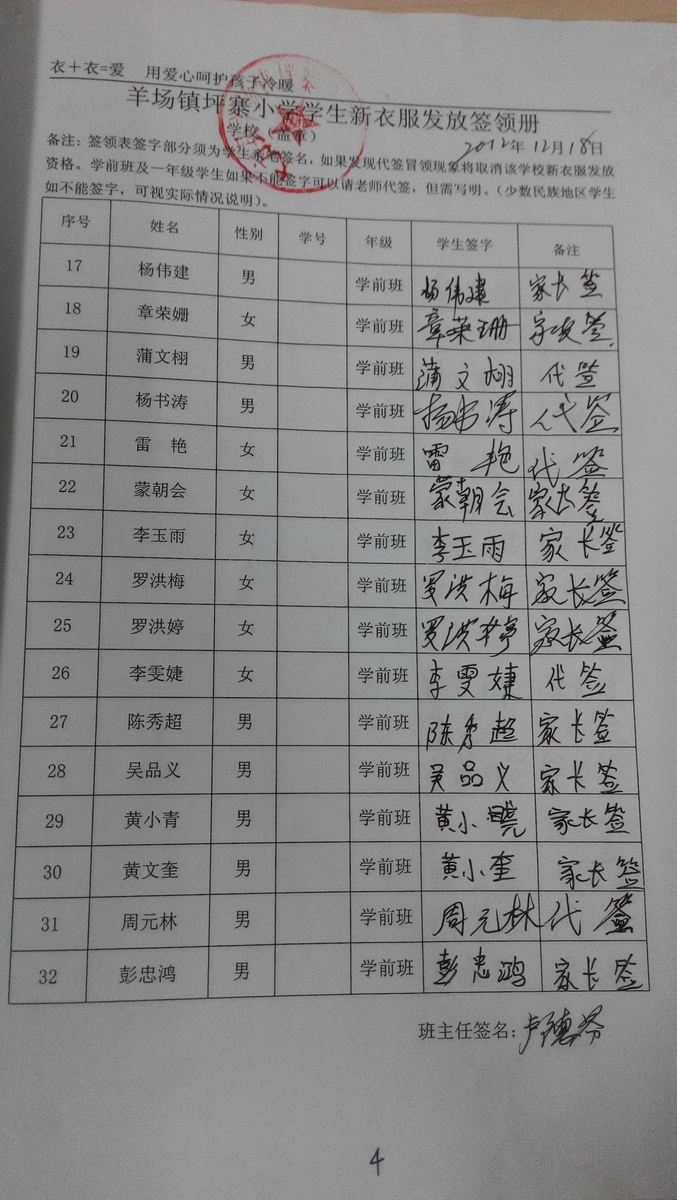 衣+衣=爱 用爱心呵护孩子冷暖
羊场镇坪寨小学学生新衣服发放签领册
学校（盖章） 2012年12月18日
备注：签领表签字部分须为学生亲笔签名，如果发现代签冒领现象将取消该学校新衣服发放
资格。学前班及一年级学生如果不能签字可以请老师代签，但需写明。（少数民族地区学生
如不能签字，可视实际情况说明）。
序号 姓名 性别 学号 年级 学生签字 备注
17 杨伟建 男 学前班 杨伟建 家长签
18 章荣姗 女 学前班 章荣珊 家长签
19 蒲文栩 男 学前班 蒲文栩 代签
20 杨书涛 男 学前班 杨书涛 代签
21 雷 艳 女 学前班 雷 艳 代签
22 蒙朝会 女 学前班 蒙朝会 家长签
23 李玉雨 女 学前班 李玉雨 家长签
24 罗洪梅 女 学前班 罗洪梅 家长签
25 罗洪婷 女 学前班 罗洪婷 家长签
26 李雯婕 女 学前班 李雯婕 代签
27 陈秀超 男 学前班 陈秀超 家长签
28 吴品义 男 学前班 吴品义 家长签
29 黄小青 男 学前班 黄小 家长签
30 黄文奎 男 学前班 黄小奎 家长签
31 周元林 男 学前班 周元林 代签
32 彭忠鸿 男 学前班 彭忠鸿 家长签
班主任签名：卢德芬
4